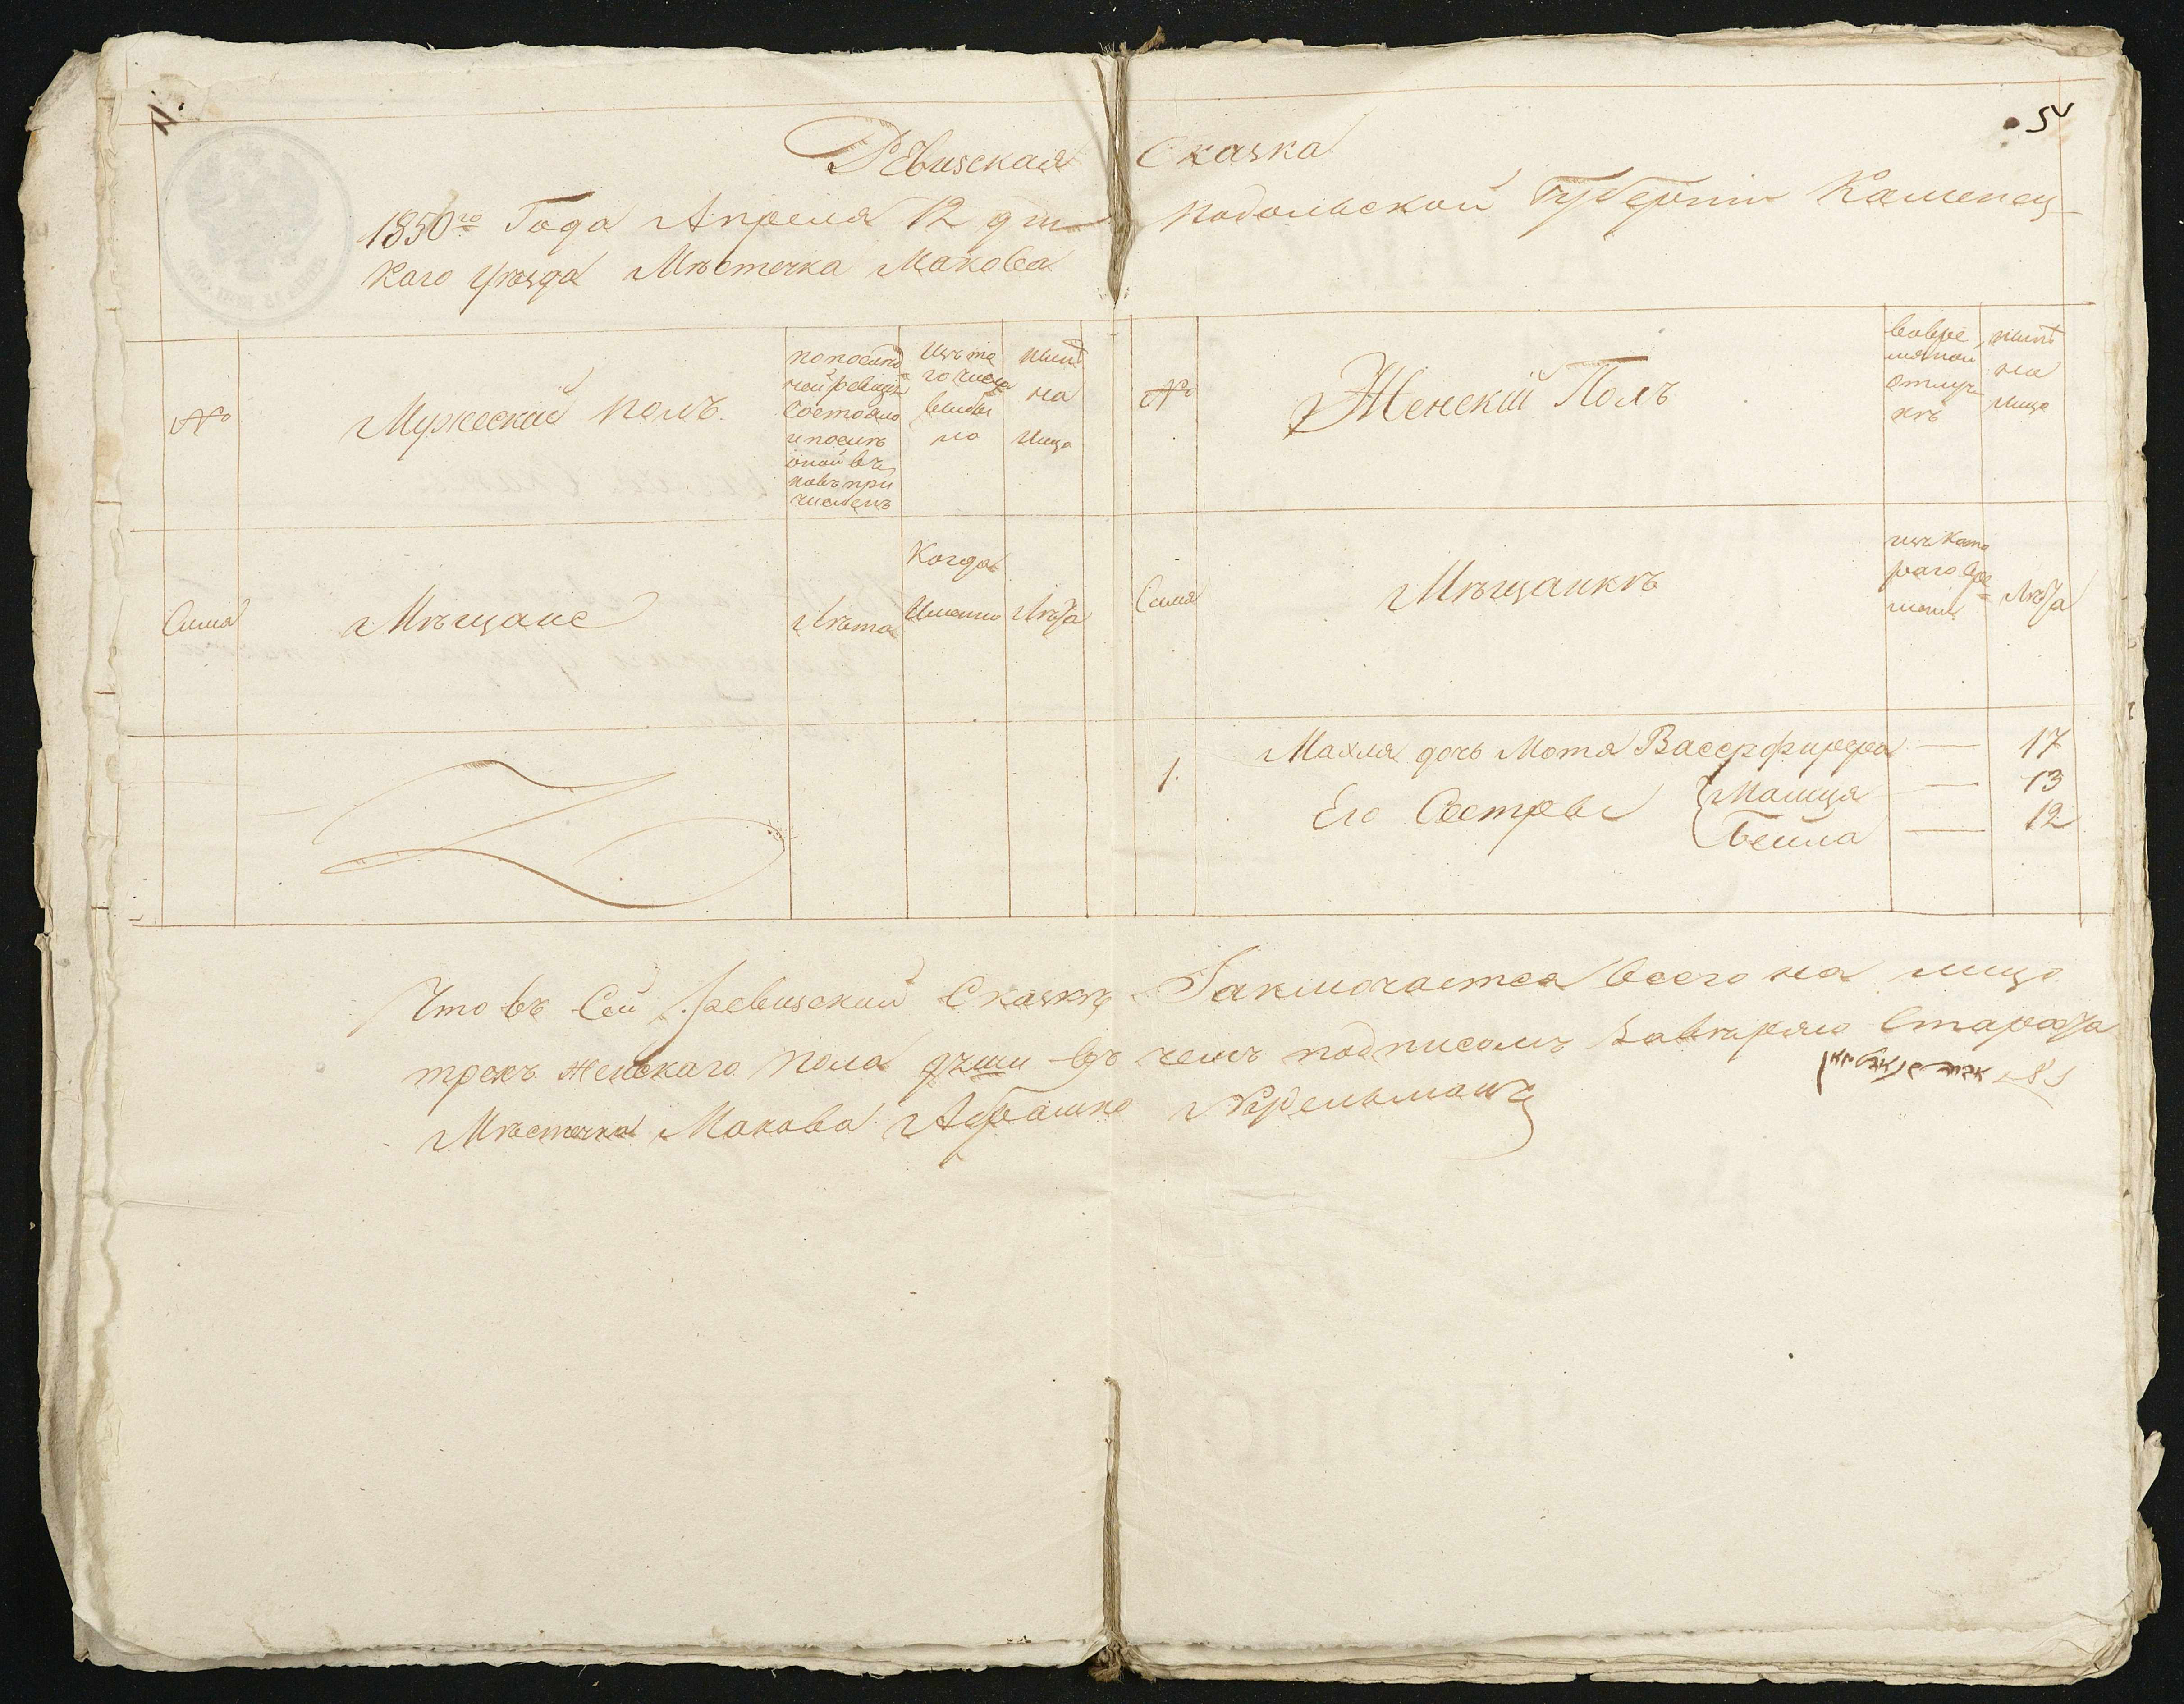 5
Ревизская Сказка
1850го Года Апреля 12 дня Подольской Губернiи Каменец-
каго уѣзда Мѣстечка Макова
№
Мужескiй полъ
по послѣд
ней ревизiи
состояло
и послѣ
оной вч
новъ при
численъ
Изъ то
го числа
выбы
ло
нынѣ
на
лицо
№
Женскiй Полъ
вовре
мяной
отлуч
кѣ
нынѣ
на
лицо
Семья
Мѣщане
Лѣта
Когда
Именно
Лѣта
Семья
Мѣщанкѣ
изъ Кото
раго вре
мени
Лѣта
1.
Махля дочь Мотя Васерфирера — 17
Его Сестры Малця — 13
Бейла — 12
Что въ Сей ревиской Сказкѣ Заключается всего на лицо
трехъ женскаго пола души въ чемъ подписомъ завѣряю Староста
Мѣстечка Макова Абрамко